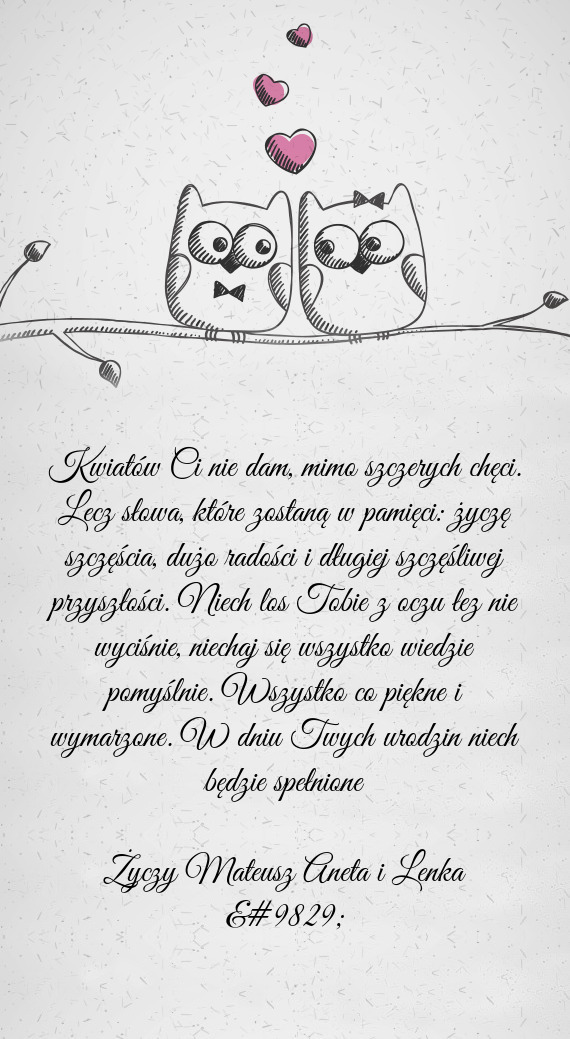 Kwiatów Ci nie dam, mimo szczerych chęci.
Lecz słowa, które zostaną w pamięci: życzę
szczęścia, dużo radości i długiej szczęśliwej
przyszłości. Niech los Tobie z oczu łez nie
wyciśnie, niechaj się wszystko wiedzie
pomyślnie. Wszystko co piękne i
wymarzone. W dniu Twych urodzin niech
będzie spełnione
Życzy Mateusz Aneta i Lenka
&#9829;